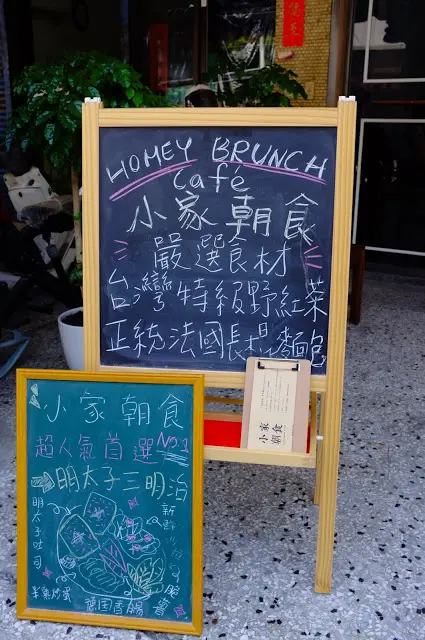 HOMEY BRUNCH
Café
小家朝食
嚴選食材
台灣特級野紅菜
正統法國長棍麵包
小家朝食
小家朝食
超人氣首選NO.1
明太子三明治
明太子吐司
德國香腸